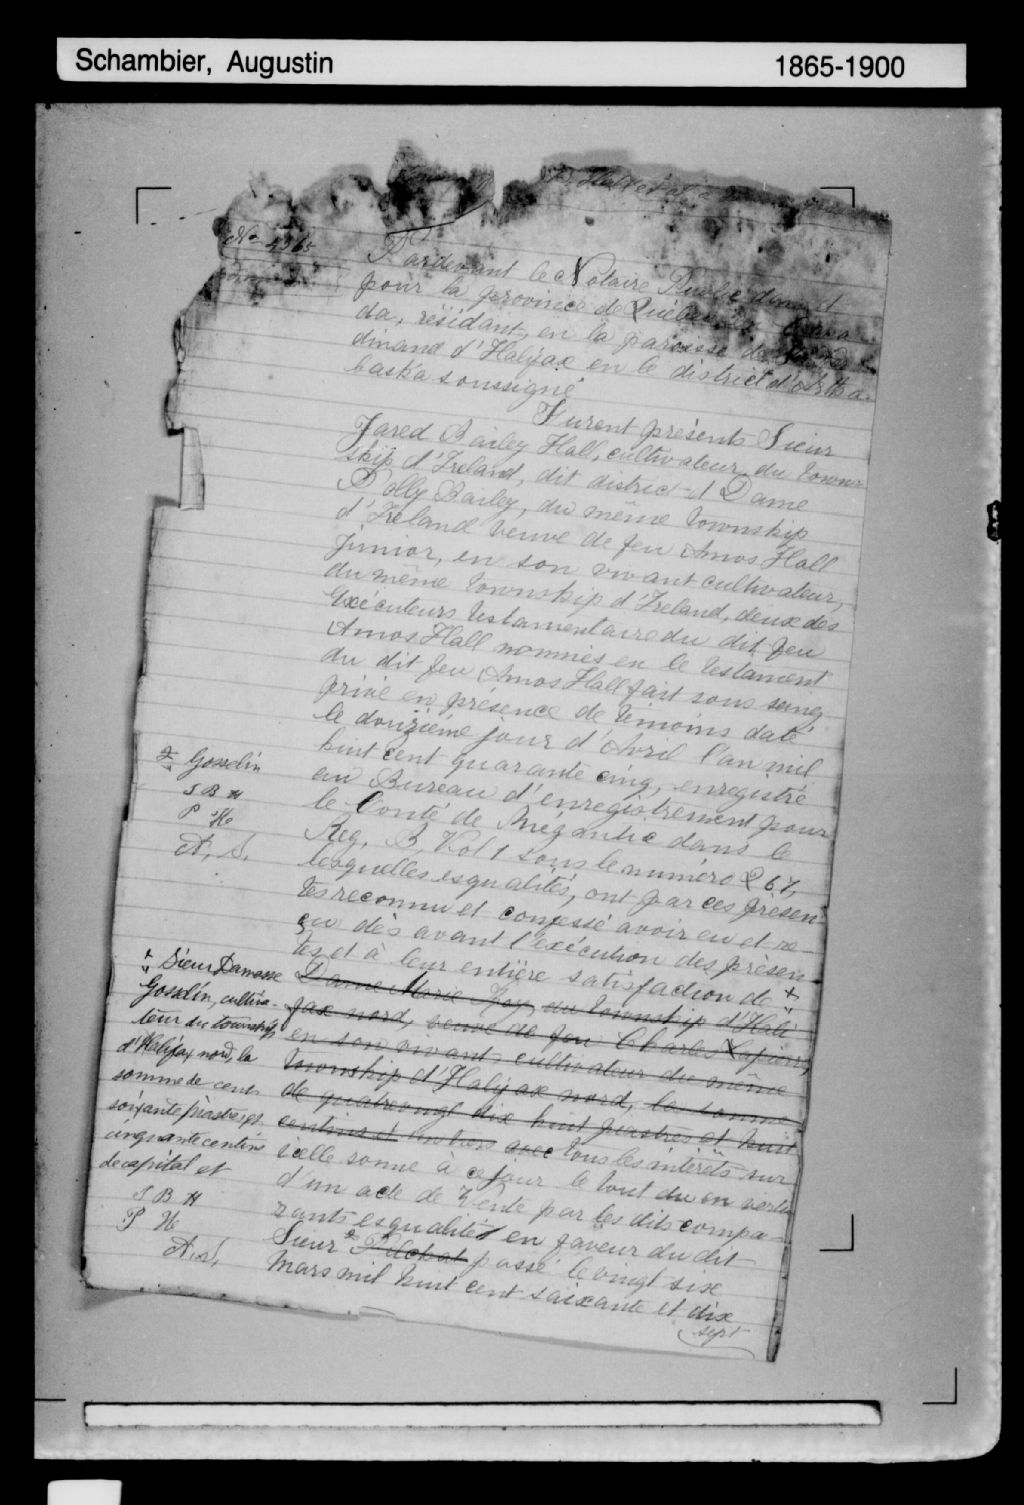 Schambier, Augustin
1865-1900
No
Pardevant le Notaire Public dans et
pour la province de Québec
da, résidant, en la paroisse de
dinand d'Halifax en le district d'Artha-
baska soussigné
Furent présents Sieur
Jared Bailey Hall, cultivateur, du town-
ship d'Ireland, dit district et Dame
Polly Bailey, du même township
d'Ireland veuve de feu Amos Hall
Junior, en son vivant cultivateur,
du même township d'Ireland, deux des
Exécuteurs testamentaire du dit feu
Amos Hall nommés en le testament
du dit feu Amos Hall fait sous seing
privé en présence de témoins daté
le douzième jour d'Avril l'an mil
huit cent quarante cinq, enregistré
au Bureau d'enregistrement pour
le Comté de Mégantic dans le
Reg. B, Vol 1 sous le numéro 267,
lesquelles esqualités, ont par ces présen-
tes reconnu et confessé avoir eu et re-
çu dès avant l'exécution des présen-
tes et à leur entière satisfaction de
Dame Marie Roy, du township d'Hali
fax nord, veuve de feu Charles Lapierre,
en son vivant cultivateur du même
township d'Halifax nord, la somme
de quatrevingt dix huit piastres et huit
centins et avec tous les intérêts sur
icelle somme à ce jour le tout du en vertu
d'un acte de Vente par les dits compa-
rants esqualités en faveur du dit
Sieur passé le vingt six
Mars mil huit cent soixante et dix
sept
Gosselin
J B H
P H
A. S.
Sieur Damasse
Gosselin, cultiva-
teur du township
d'Halifax nord, la
somme de cent
soixante piastres et
cinquante centins
de capital et
J B H
P H
A. S.